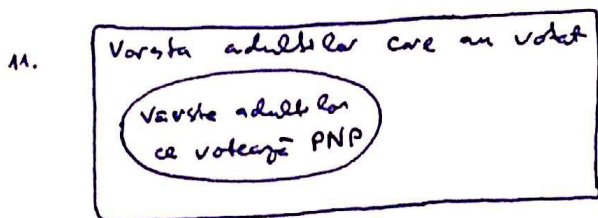 11.
Vârsta adulților care au votat
Vârsta adulților
ce votează PNP